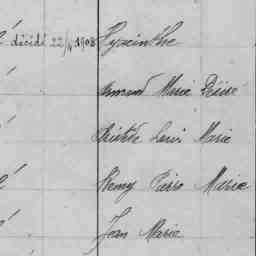 é décédé 22/4 1908 Hyacinthe
é Armand Marie Désiré
é Aristide Louis Marie
é Remy Pierre Marie
é Jean Marie